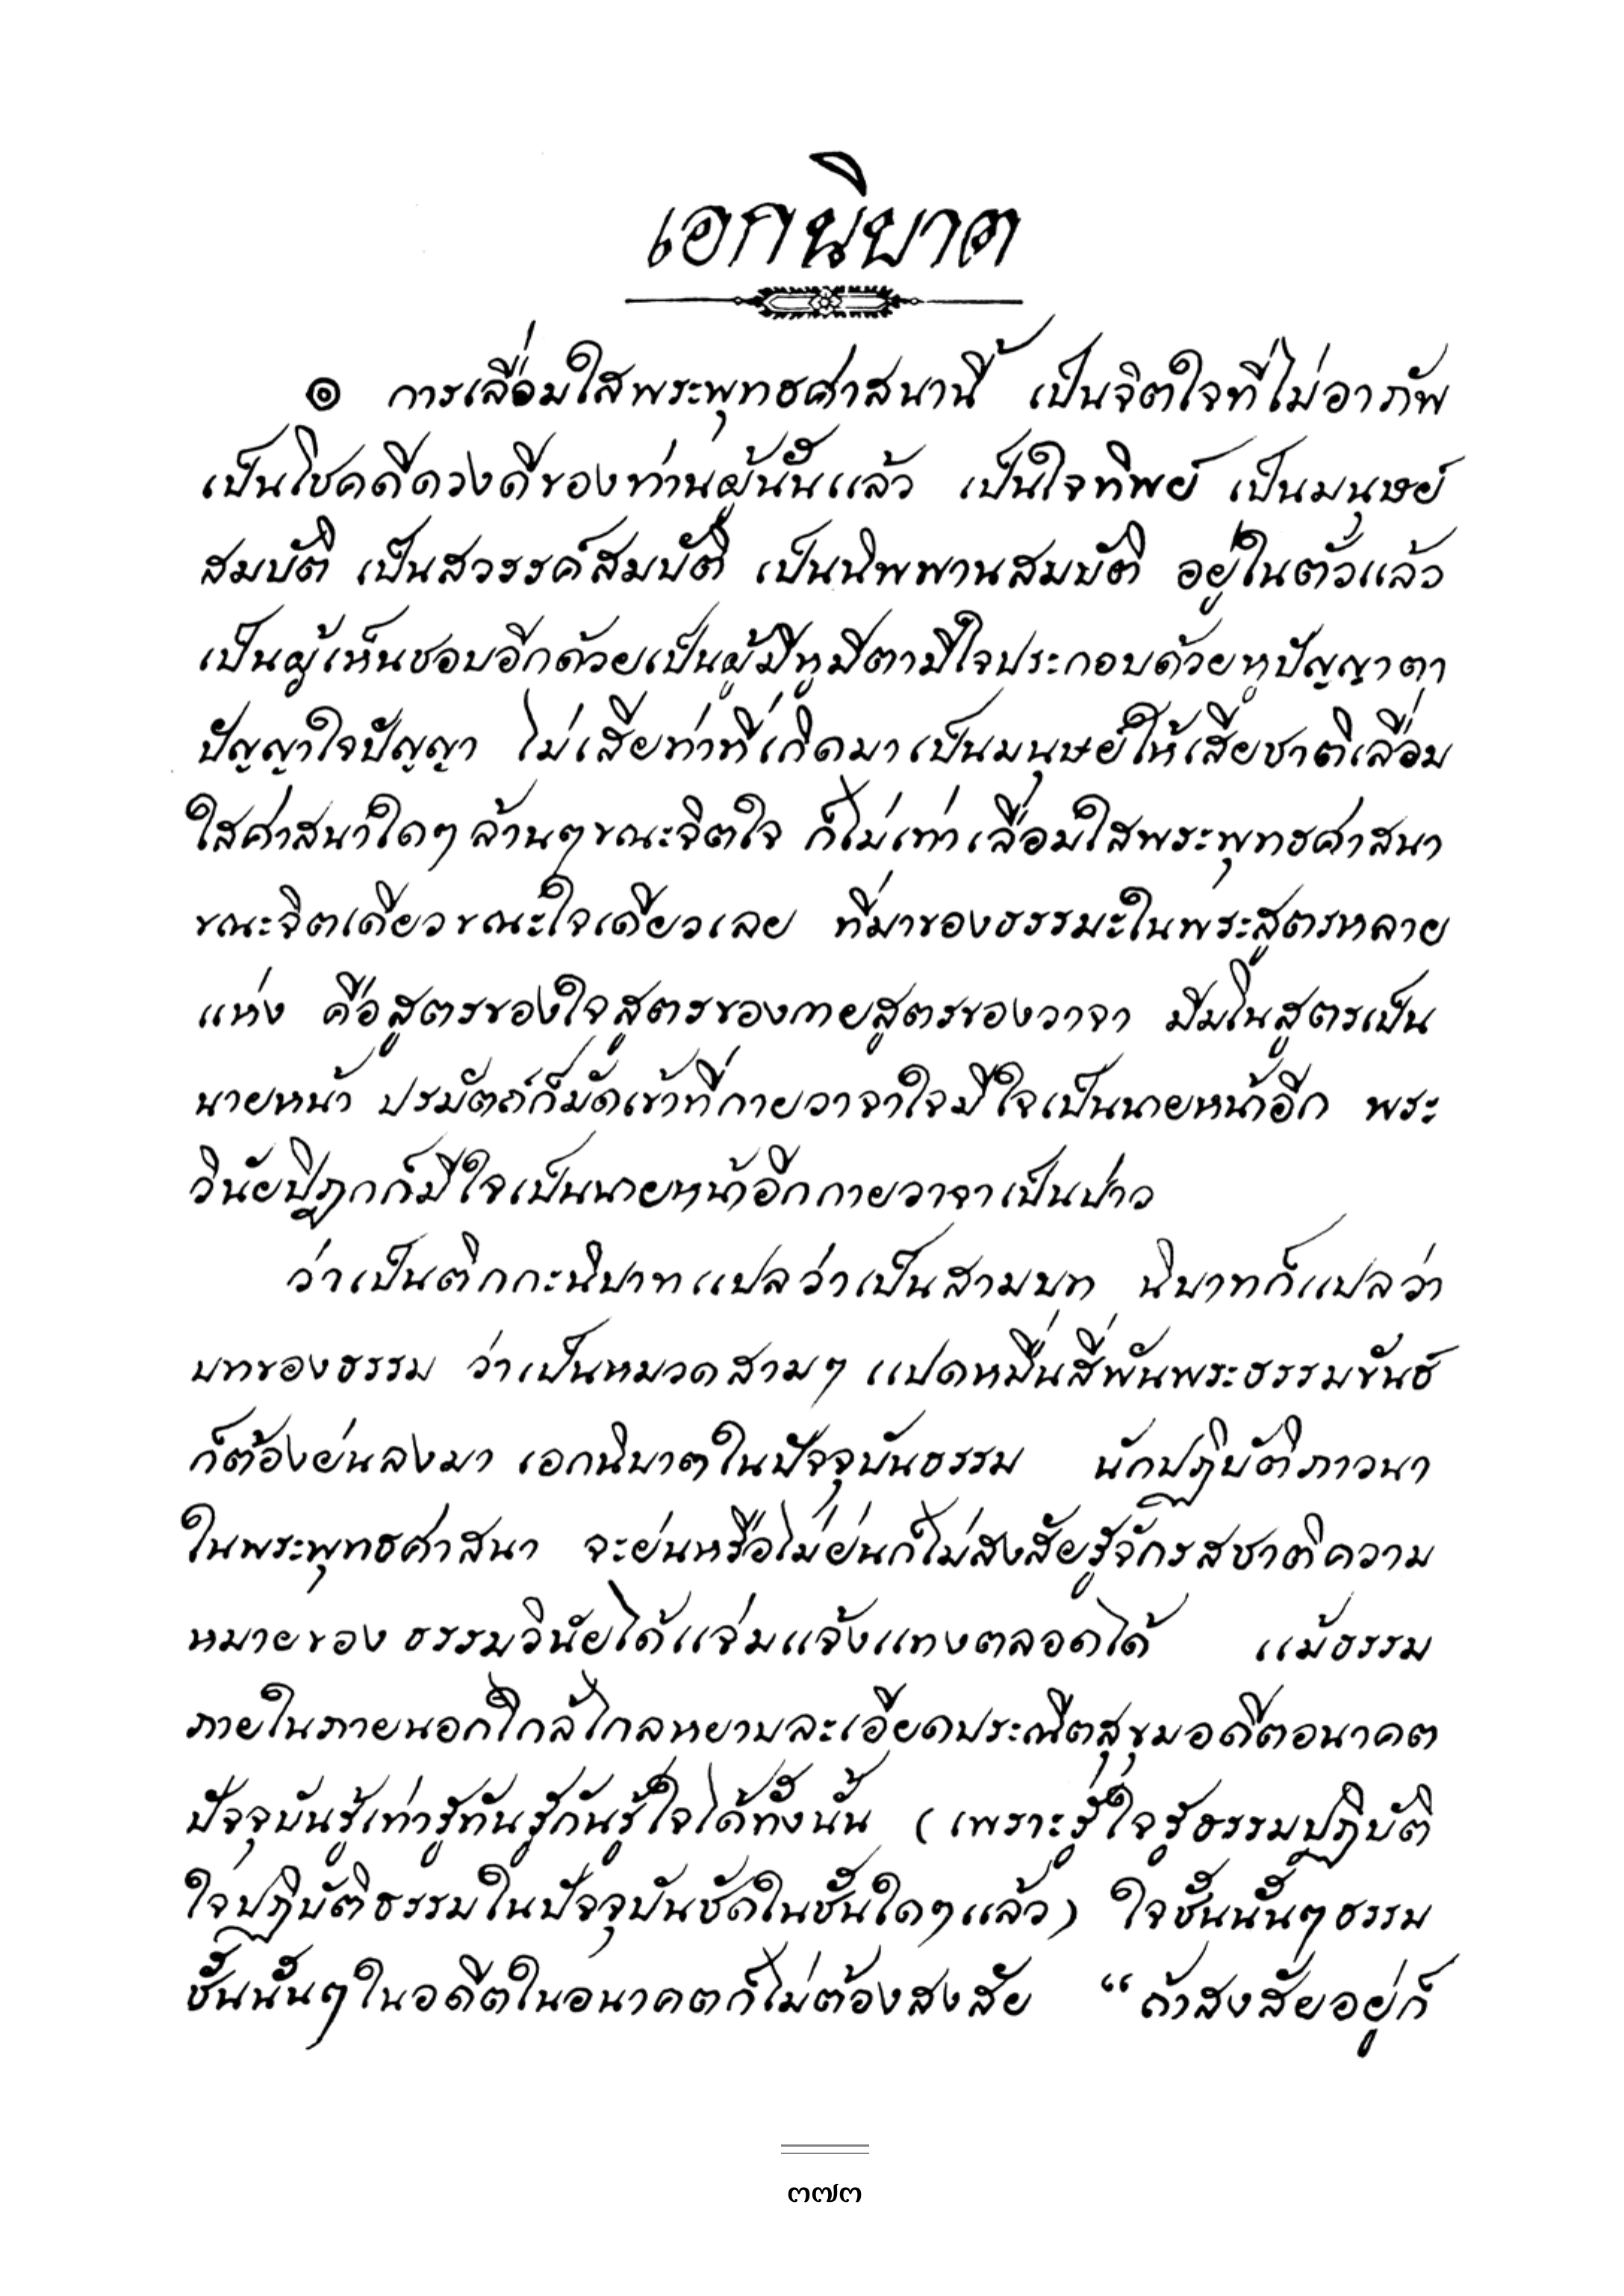 เอกนิบาต
๏ การเลื่อมใสพระพุทธศาสนานี้ เป็นจิตใจที่ไม่อาภัพ
เป็นโชคดีดวงดีของท่านผู้นั้นแล้ว เป็นใจทิพย์ เป็นมนุษย์
สมบัติ เป็นสวรรค์สมบัติ เป็นนิพพานสมบัติ อยู่ในตัวแล้ว
เป็นผู้เห็นชอบอีกด้วยเป็นผู้มีหูมีตามีใจประกอบด้วยหูปัญญาตา
ปัญญาใจปัญญา ไม่เสียท่าที่เกิดมาเป็นมนุษย์ให้เสียชาติเลื่อม
ใสศาสนาใดๆ ล้านๆขณะจิตใจ ก็ไม่เท่าเลื่อมใสพระพุทธศาสนา
ขณะจิตเดียวขณะใจเดียวเลย ที่มาของธรรมะในพระสูตรหลาย
แห่ง คือสูตรของใจสูตรของกายสูตรของวาจา มีมโนสูตรเป็น
นายหน้า ปรมัตถ์ก็มัดเข้าที่กายวาจาใจมีใจเป็นนายหน้าอีก พระ
วินัยปิฎกก็มีใจเป็นนายหน้าอีกกายวาจาเป็นบ่าว
ว่าเป็นติกกะนิบาทแปลว่าเป็นสามบท นิบาทก็แปลว่า
บทของธรรม ว่าเป็นหมวดสามๆ แปดหมื่นสี่พันพระธรรมขันธ์
ก็ต้องย่นลงมา เอกนิบาตในปัจจุบันธรรม นักปฏิบัติภาวนา
ในพระพุทธศาสนา จะย่นหรือไม่ย่นก็ไม่สงสัยรู้จักรสชาติความ
หมายของ ธรรมวินัยได้แจ่มแจ้งแทงตลอดได้ แม้ธรรม
ภายในภายนอกใกล้ไกลหยาบละเอียดประณีตสุขุมอดีตอนาคต
ปัจจุบันรู้เท่ารู้ทันรู้กันรู้ใจได้ทั้งนั้น (เพราะรู้ใจรู้ธรรมปฏิบัติ
ใจปฏิบัติธรรมในปัจจุบันชัดในชั้นใดๆแล้ว) ใจชั้นนั้นๆธรรม
ชั้นนั้นๆในอดีตในอนาคตก็ไม่ต้องสงสัย “ถ้าสงสัยอยู่ก็
๓๗๓